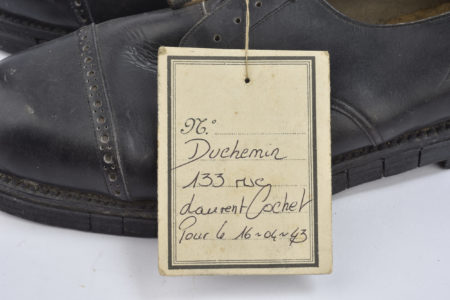 N.º
Duchemin
133 rue
Laurent Cochet
Pour le 16-04-43